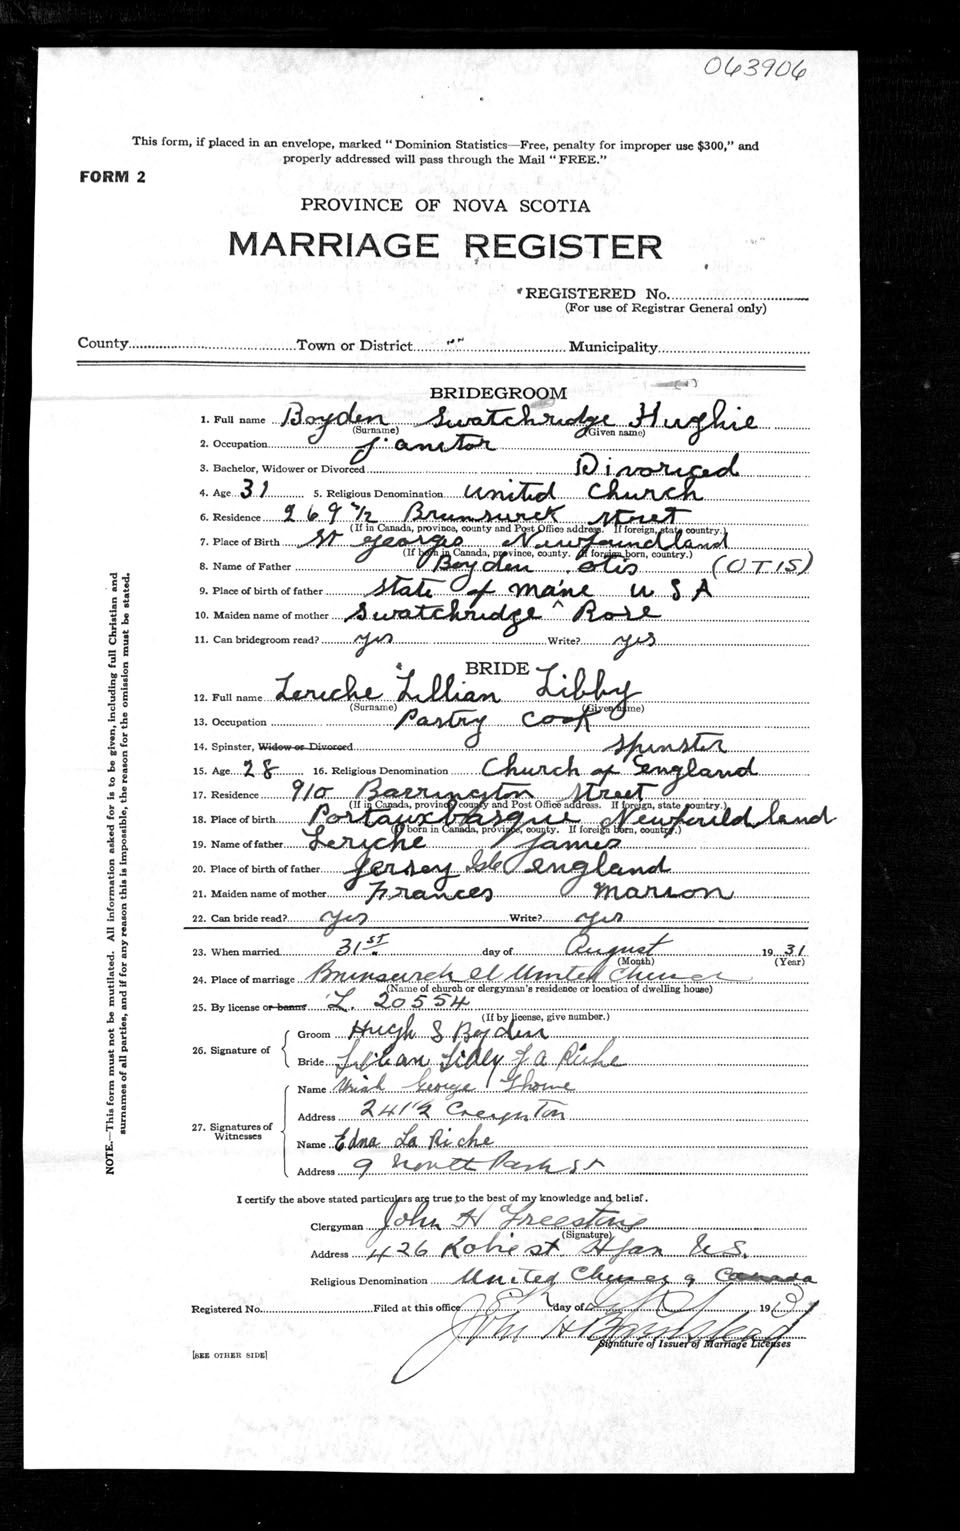 063906
This form, if placed in an envelope, marked "Dominion Statistics—Free, penalty for improper use $300," and
properly addressed will pass through the Mail "FREE."
FORM 2
PROVINCE OF NOVA SCOTIA
MARRIAGE REGISTER
*REGISTERED No.
(For use of Registrar General only)
County Town or District Municipality
BRIDEGROOM
1. Full name Boyden Swatchridge Hughie
(Surname) (Given name)
2. Occupation Janitor
3. Bachelor, Widower or Divorced Divorced
4. Age 31 5. Religious Denomination United Church
6. Residence 269 1/2 Brunswick Street
(If in Canada, province, county and Post Office address. If foreign, state country.)
7. Place of Birth St Georges Newfoundland
(If born in Canada, province, county. If foreign born, country.)
8. Name of Father Boyden Otis (OTIS)
9. Place of birth of father State of Maine U S A
10. Maiden name of mother Swatchridge ^ Rose
11. Can bridegroom read? yes Write? yes
BRIDE
12. Full name Leriche Lillian Libby
(Surname) (Given name)
13. Occupation Pastry Cook
14. Spinster, Widow or Divorced Spinster
15. Age 28 16. Religious Denomination Church of England
17. Residence 910 Barrington Street
(If in Canada, province, county and Post Office address. If foreign, state country.)
18. Place of birth Portauxbasque Newfouildland
(If born in Canada, province, county. If foreign born, country.)
19. Name of father Leriche James
20. Place of birth of father Jersey Isle England
21. Maiden name of mother Frances Marion
22. Can bride read? yes Write? yes
23. When married 31st day of August 1931
(Month) (Year)
24. Place of marriage Brunswick St United Church
(Name of church or clergyman's residence or location of dwelling house)
25. By license or banns L. 20554
(If by license, give number.)
26. Signature of
Groom Hugh S Boyden
Bride Lillian Libby La Riche
27. Signatures of
Witnesses
Name George Thorne
Address 241 1/2 Creighton
Name Edna La Riche
Address 9 North Park St
I certify the above stated particulars are true to the best of my knowledge and belief.
Clergyman John H Freestone
(Signature)
Address 426 Robie st. Hfax N.S.
Religious Denomination United Church of Canada
Registered No. Filed at this office day of 1931
John H
Signature of Issuer of Marriage Licenses
[SEE OTHER SIDE]
NOTE.—This form must not be mutilated. All information asked for is to be given, including full Christian and
surnames of all parties, and if for any reason this is impossible, the reason for the omission must be stated.